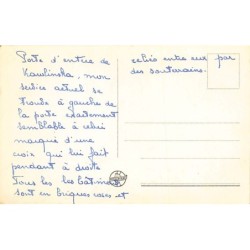 Porte d'entrée de
Karolinska, mon
service actuel se
trouve à gauche de
la porte exactement
semblable à celui
marqué d'une
croix qui lui fait
pendant à droite
Tous les les bâtiments
sont en briques roses et
reliés entre eux par
des souterrains.